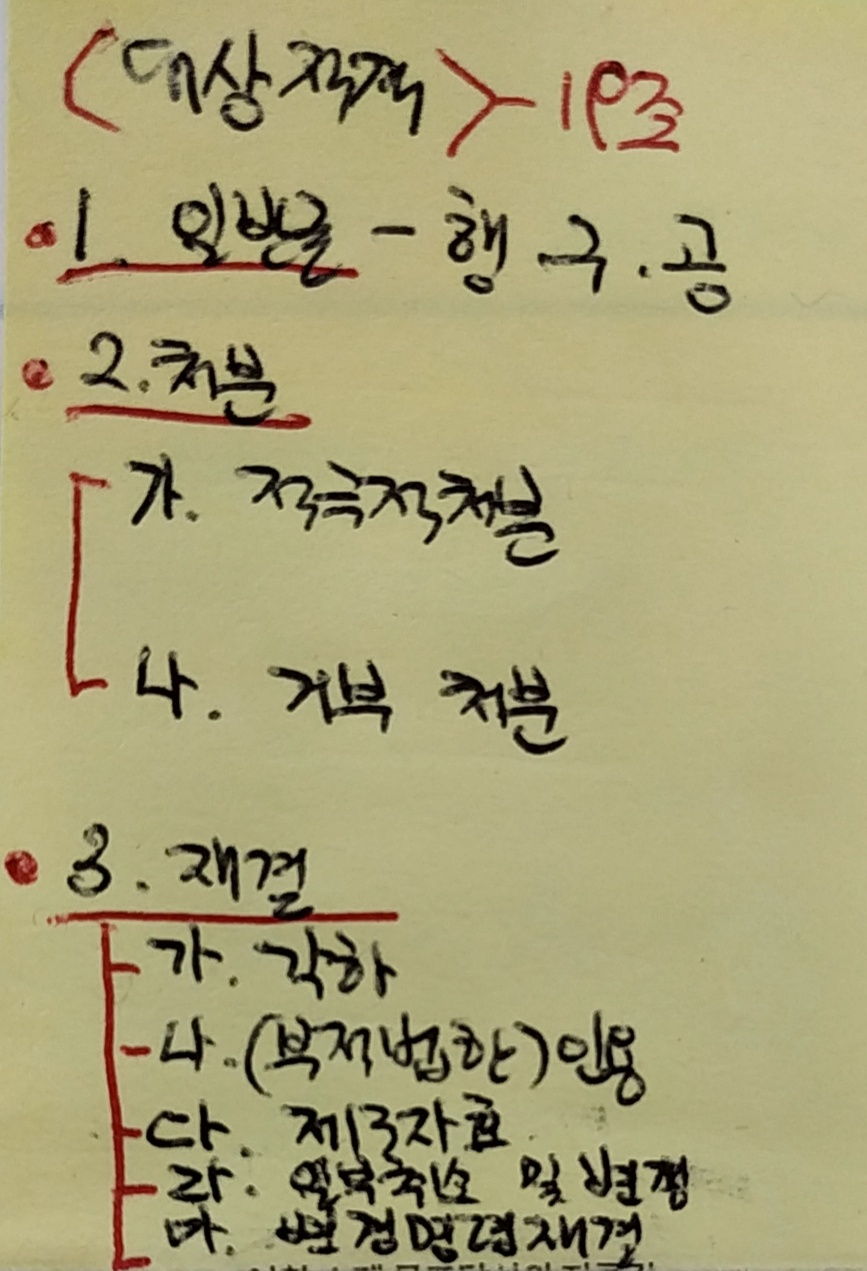 <대상적격> - 19조
1. 일반론 - 행.구.공
2. 처분
가. 적극적처분
나. 거부 처분
3. 재결
가. 각하
나. (부적법한) 인용
다. 제3자효
라. 일부취소 및 변경
마. 변경명령재결